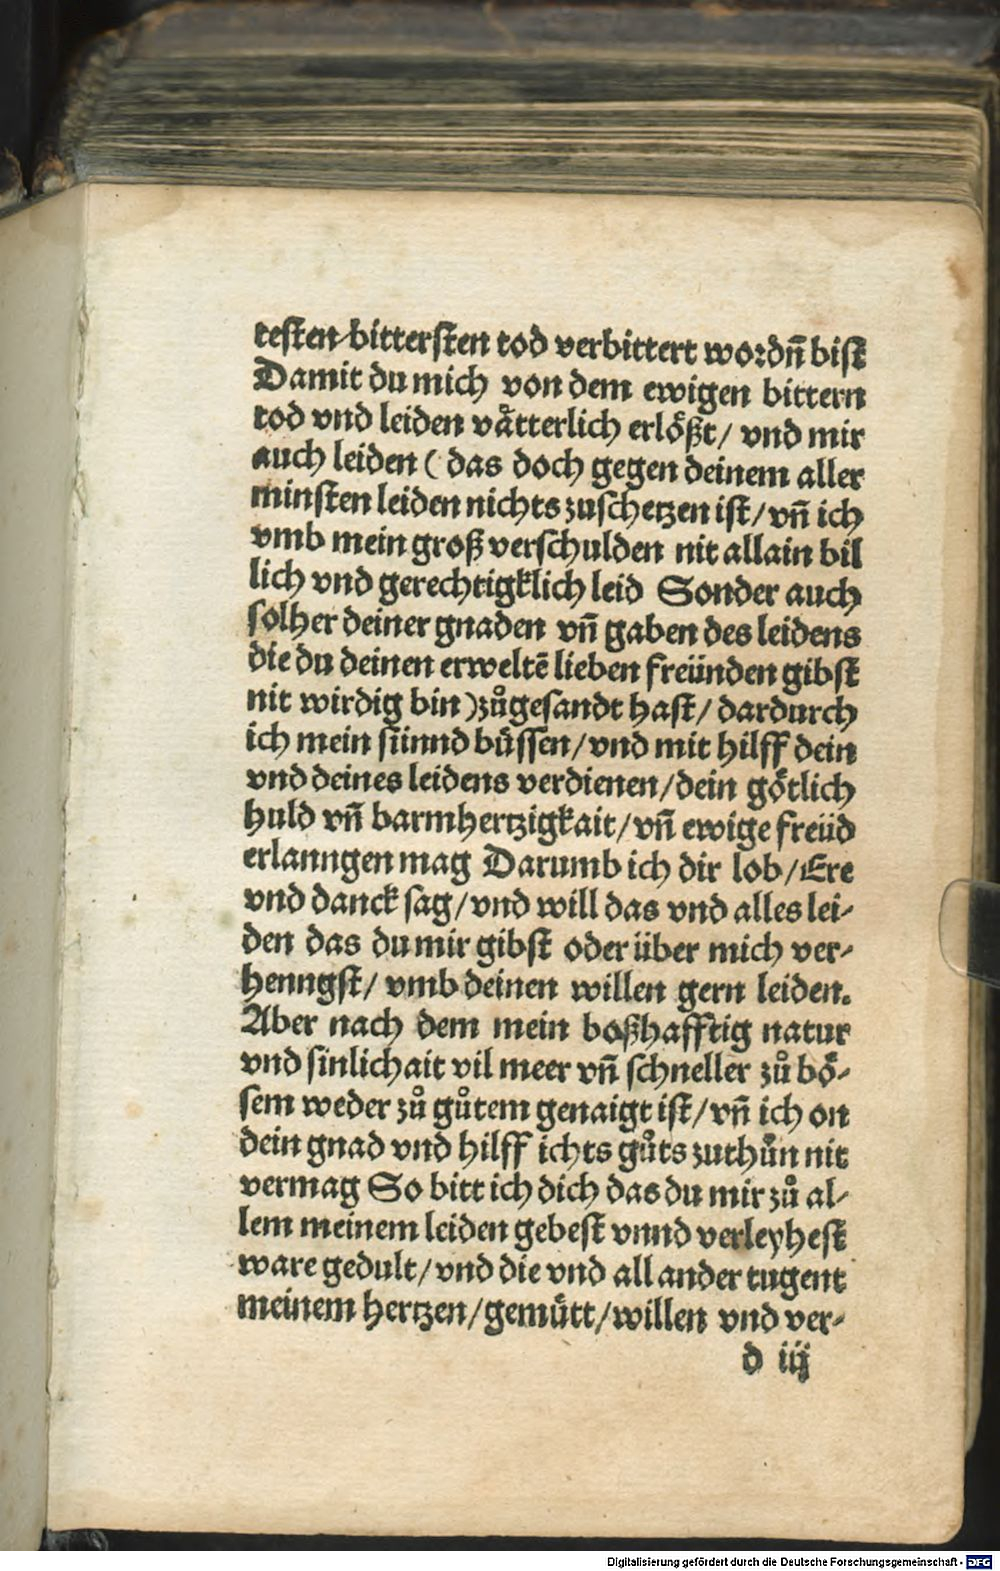 testen bittersten tod verbittert wordñ bist
Damit du mich von dem ewigen bittern
tod vnd leiden vaͤtterlich erloͤßt/ vnd mir
auch leiden ( das doch gegen deinem aller
minsten leiden nichts zuschetzen ist/ vñ ich
vmb mein groß verschulden nit allain bil
lich vnd gerechtigklich leid Sonder auch
solher deiner gnaden vñ gaben des leidens
die du deinen erweltē lieben freünden gibst
nit wirdig bin )zůgesandt hast/ dardurch
ich mein sünnd buͤssen/ vnd mit hilff dein
vnd deines leidens verdienen/ dein goͤtlich
huld vñ barmhertzigkait/ vñ ewige freüd
erlanngen mag Darumb ich dir lob/ Ere
vnd danck sag/ vnd will das vnd alles lei-
den das du mir gibst oder über mich ver-
henngst/ vmb deinen willen gern leiden.
Aber nach dem mein boßhafftig natur
vnd sinlichait vil meer vñ schneller zů boͤ-
sem weder zů gůtem genaigt ist/ vñ ich on
dein gnad vnd hilff ichts gůts zuthůn nit
vermag So bitt ich dich das du mir zů al-
lem meinem leiden gebest vnnd verleyhest
ware gedult/ vnd die vnd all ander tugent
meinem hertzen/ gemuͤtt/ willen vnd ver-
d iij
Digitalisierung gefördert durch die Deutsche Forschungsgemeinschaft - DFG